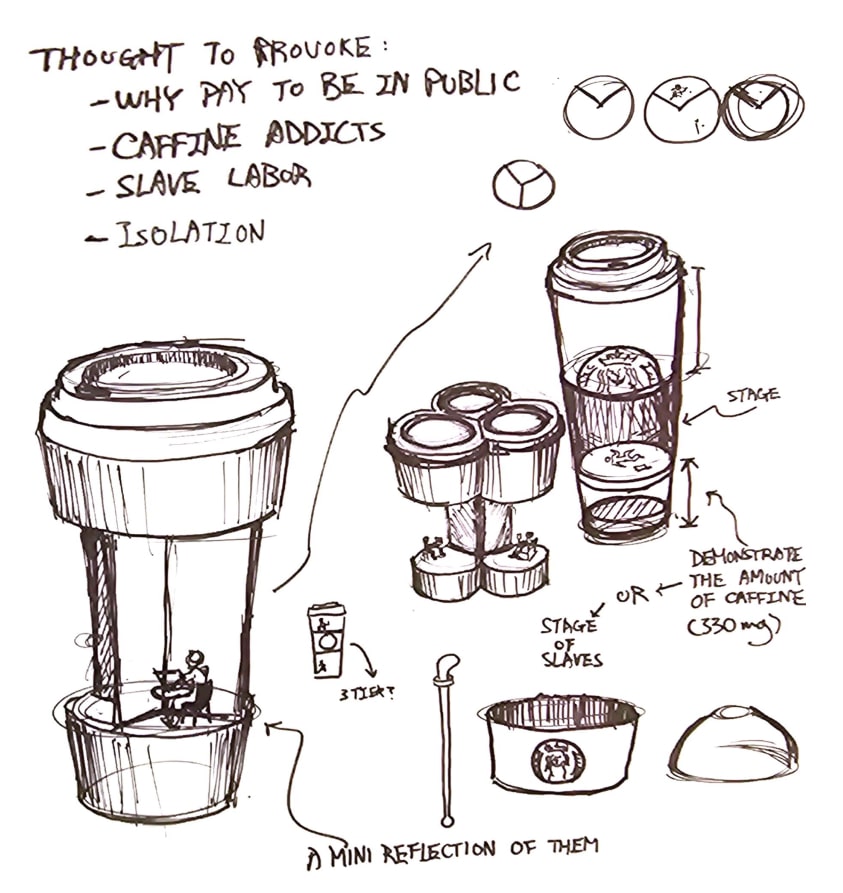 THOUGHT TO PROVOKE:
- WHY PAY TO BE IN PUBLIC
- CAFFINE ADDICTS
- SLAVE LABOR
- ISOLATION
STAGE
DEMONSTRATE
THE AMOUNT
OF CAFFINE
(330mg)
OR
STAGE
OF
SLAVES
3 TIER?
A MINI REFLECTION OF THEM